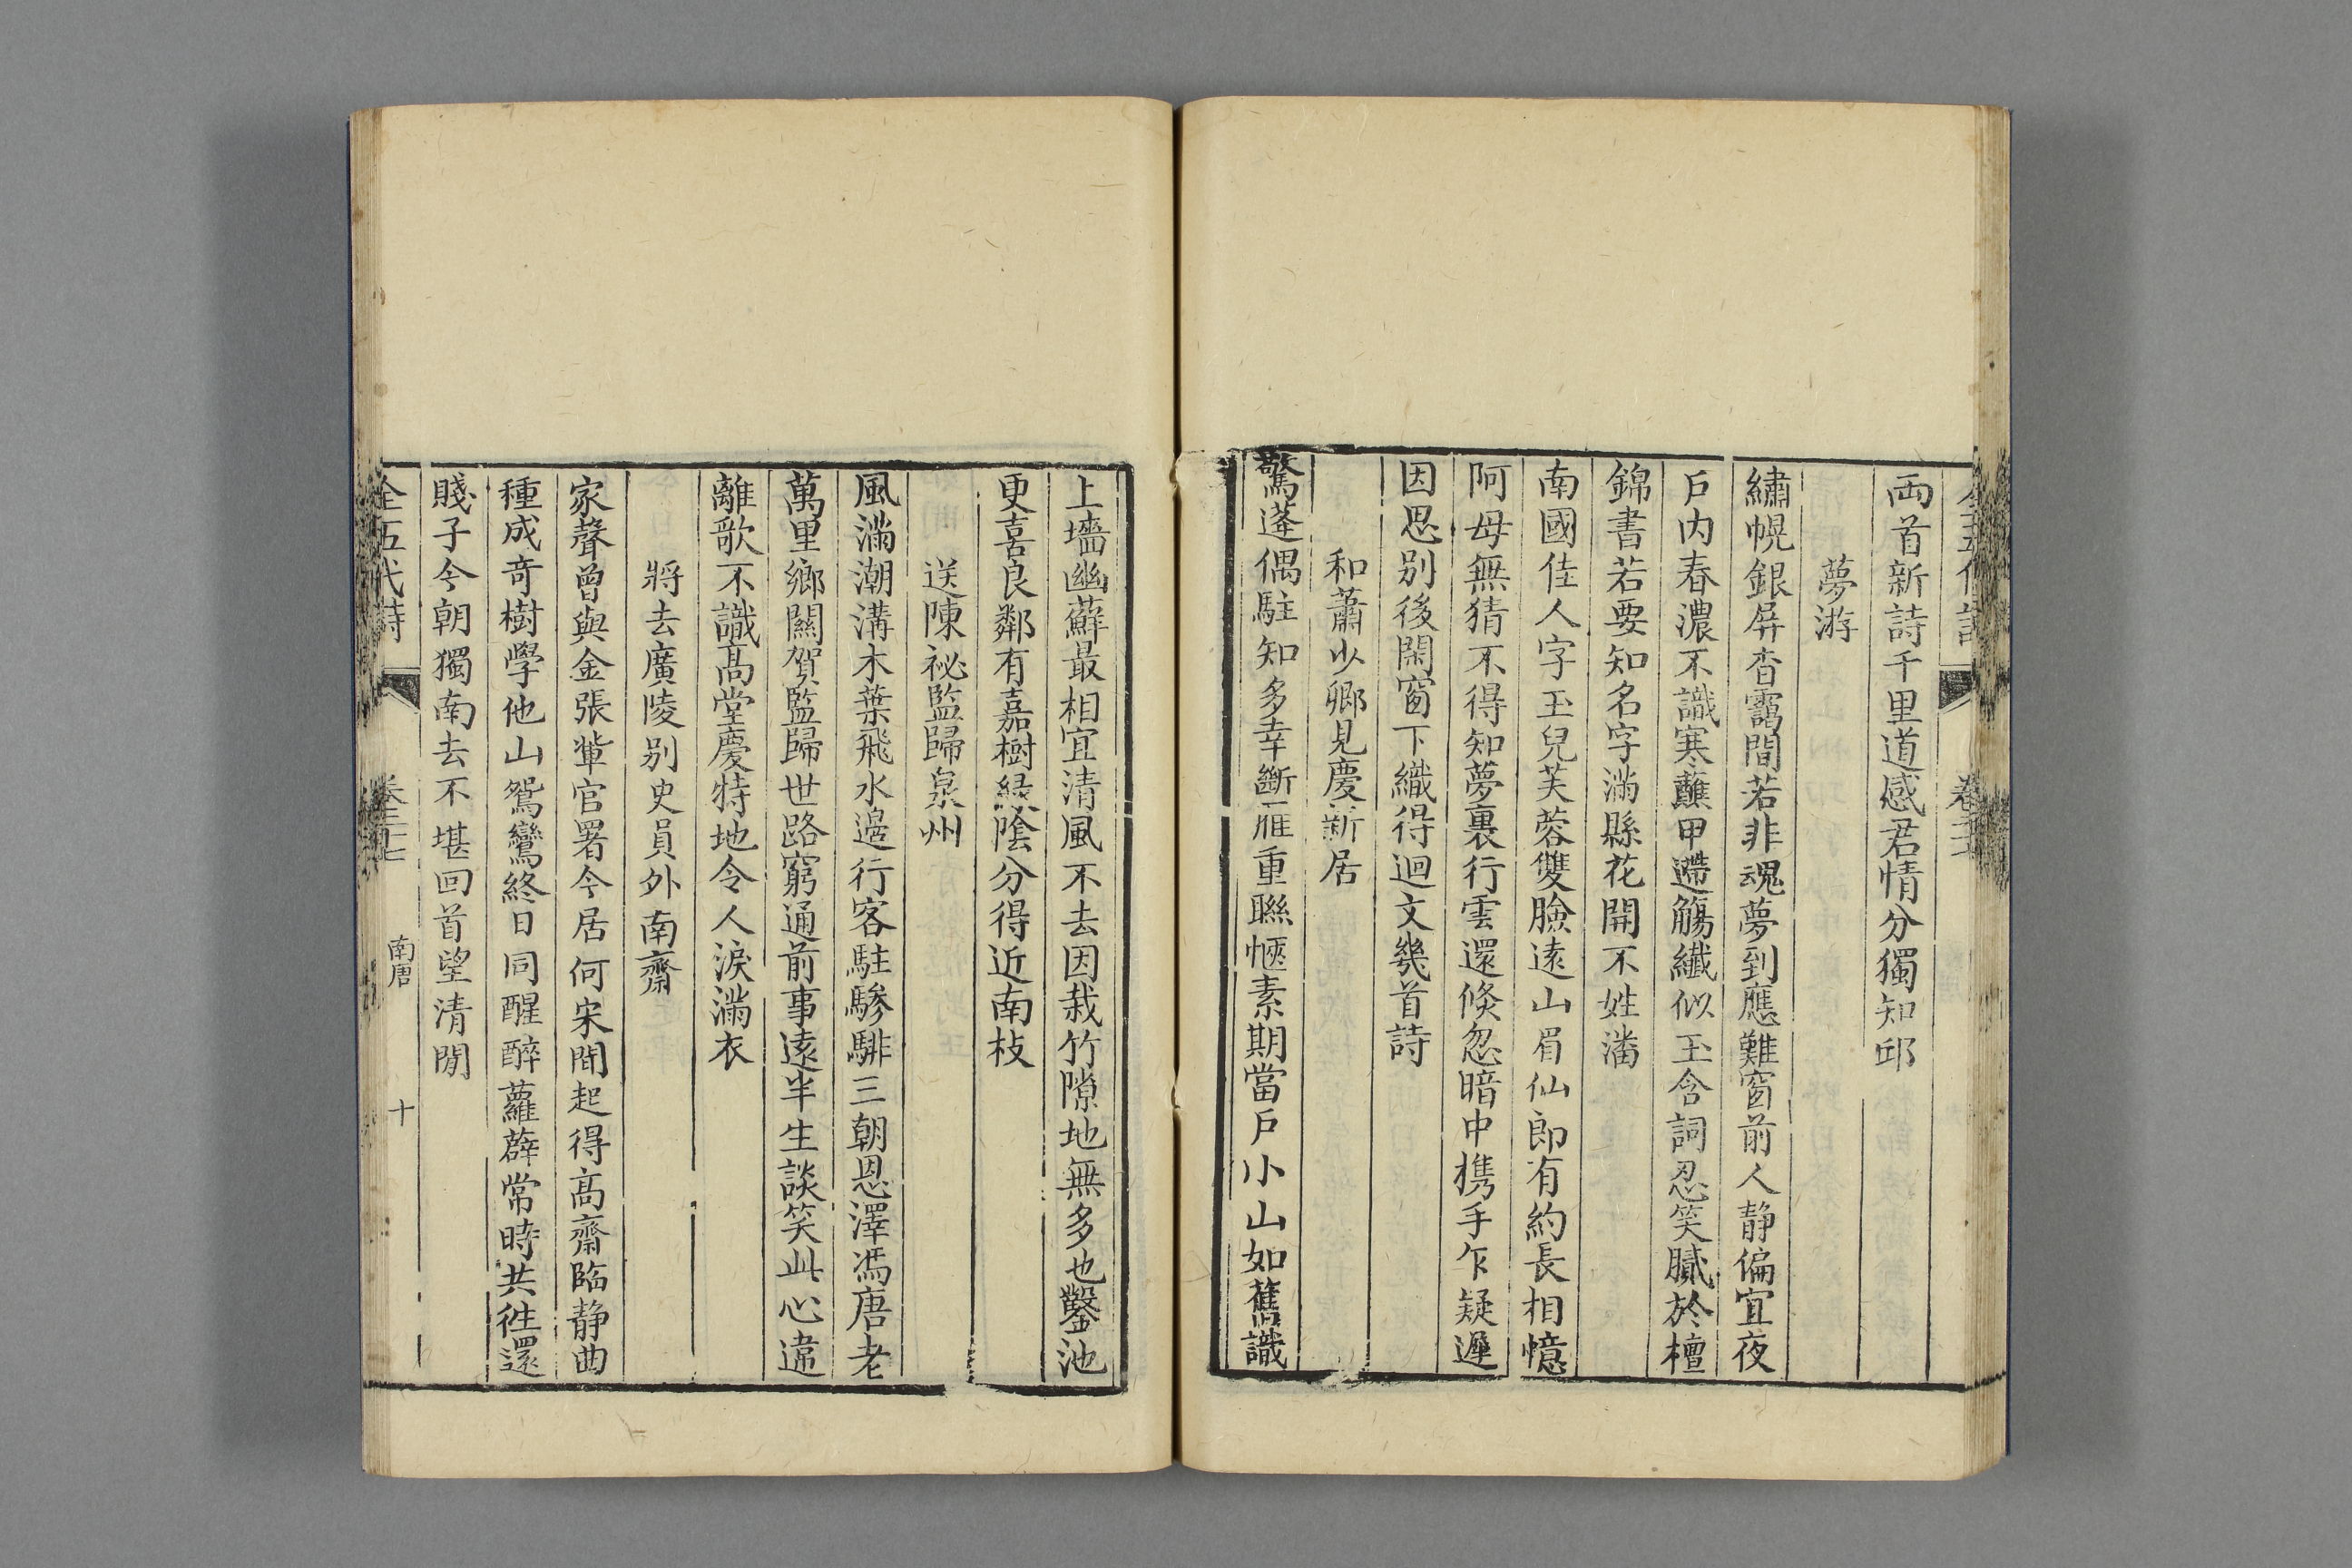 両首新詩千里道感君情分獨知邱
夢游
繡幌銀屏杳靄間若非魂夢到應難窗前人靜偏宜夜
戶内春濃不識寒蘸甲遞觴纎似玉含詞忍笑膩於檀
錦書若要知名字滿縣花開不姓潘
南國佳人字玉兒芙蓉雙臉遠山眉仙郎有約長相憶
阿母無猜不得知夢裏行雲還倏忽暗中携手乍疑遲
因思别後閑窗下織得迴文幾首詩
和蕭少卿見慶新居
驚蓬偶駐知多幸斷雁重聯愜素期當戶小山如舊識
上墻幽蘚最相宜清風不去因栽竹隙地無多也鑿池
更喜良鄰有嘉樹綠陰分得近南枝
送陳祕監歸泉州
風滿潮溝木葉飛水邊行客駐驂騑三朝恩澤馮唐老
萬里鄉關賀監歸世路窮通前事遠半生談笑此心違
離歌不識高堂慶特地令人淚滿衣
將去廣陵别史員外南齋
家聲曾與金張輩官署今居何宋間起得高齋臨靜曲
種成奇樹學他山鴛鸞終日同醒醉蘿薜常時共徃還
賤子今朝獨南去不堪回首望清閒
全五代詩 卷三十七 南唐 十